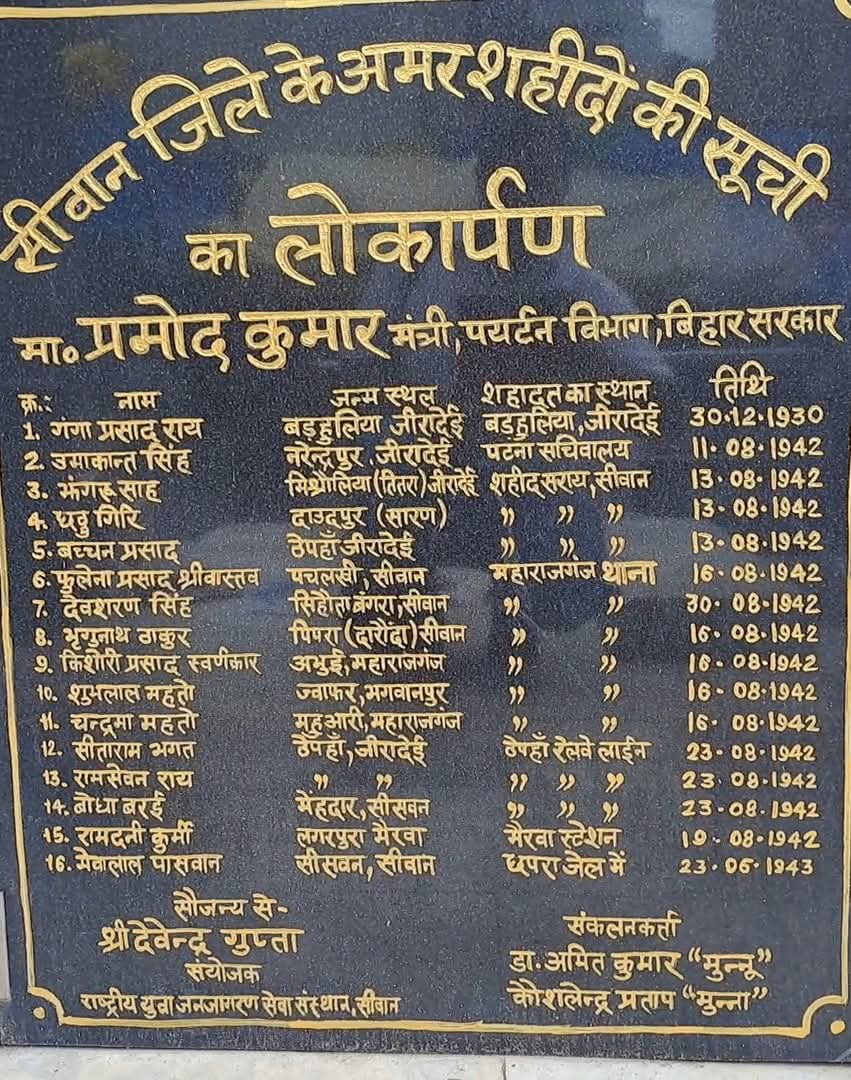 सीवान जिले के अमर शहीदों की सूची
का लोकार्पण
मा० प्रमोद कुमार मंत्री, पयर्टन विभाग, बिहार सरकार
क्र.: नाम जन्म स्थल शहादत का स्थान तिथि
1. गंगा प्रसाद राय बड़हुलिया जीरादेई बड़हुलिया, जीरादेई 30.12.1930
2. उमाकान्त सिंह नरेन्द्रपुर, जीरादेई पटना सचिवालय 11.08.1942
3. झगरू साह मिश्रौलिया (तितरा) जीरादेई शहीद सराय, सीवान 13.08.1942
4. छठु गिरि दाउदपुर (सारण) " " " 13.08.1942
5. बच्चन प्रसाद ठेपहाँ जीरादेई " " " 13.08.1942
6. फुलेना प्रसाद श्रीवास्तव पचलखी, सीवान महाराजगंज थाना 16.08.1942
7. देवशरण सिंह सिहौता बंगरा, सीवान " " 30.08.1942
8. भृगुनाथ ठाकुर पिपरा (दारौंदा) सीवान " " 16.08.1942
9. किशोरी प्रसाद स्वर्णकार अभुई, महाराजगंज " " 16.08.1942
10. शुभलाल महतो ज्वाफर, भगवानपुर " " 16.08.1942
11. चन्द्रमा महतो महुआरी, महाराजगंज " " 16.08.1942
12. सीताराम भगत ठेपहाँ, जीरादेई ठेपहाँ रेलवे लाईन 23.08.1942
13. रामसेवन राय " " " " " 23.08.1942
14. बोधा बरई मेंहदार, सीसवन " " " 23.08.1942
15. रामदनी कुर्मी लगरपुरा मैरवा मैरवा स्टेशन 19.08.1942
16. मेवालाल पासवान सीसवन, सीवान छपरा जेल में 23.06.1943
सौजन्य से-
श्री देवेन्द्र गुप्ता
संयोजक
राष्ट्रीय युवा जनजागरण सेवा संस्थान, सीवान
संकलनकर्ता
डा. अमित कुमार "मुन्नू"
कौशलेन्द्र प्रताप "मुन्ना"